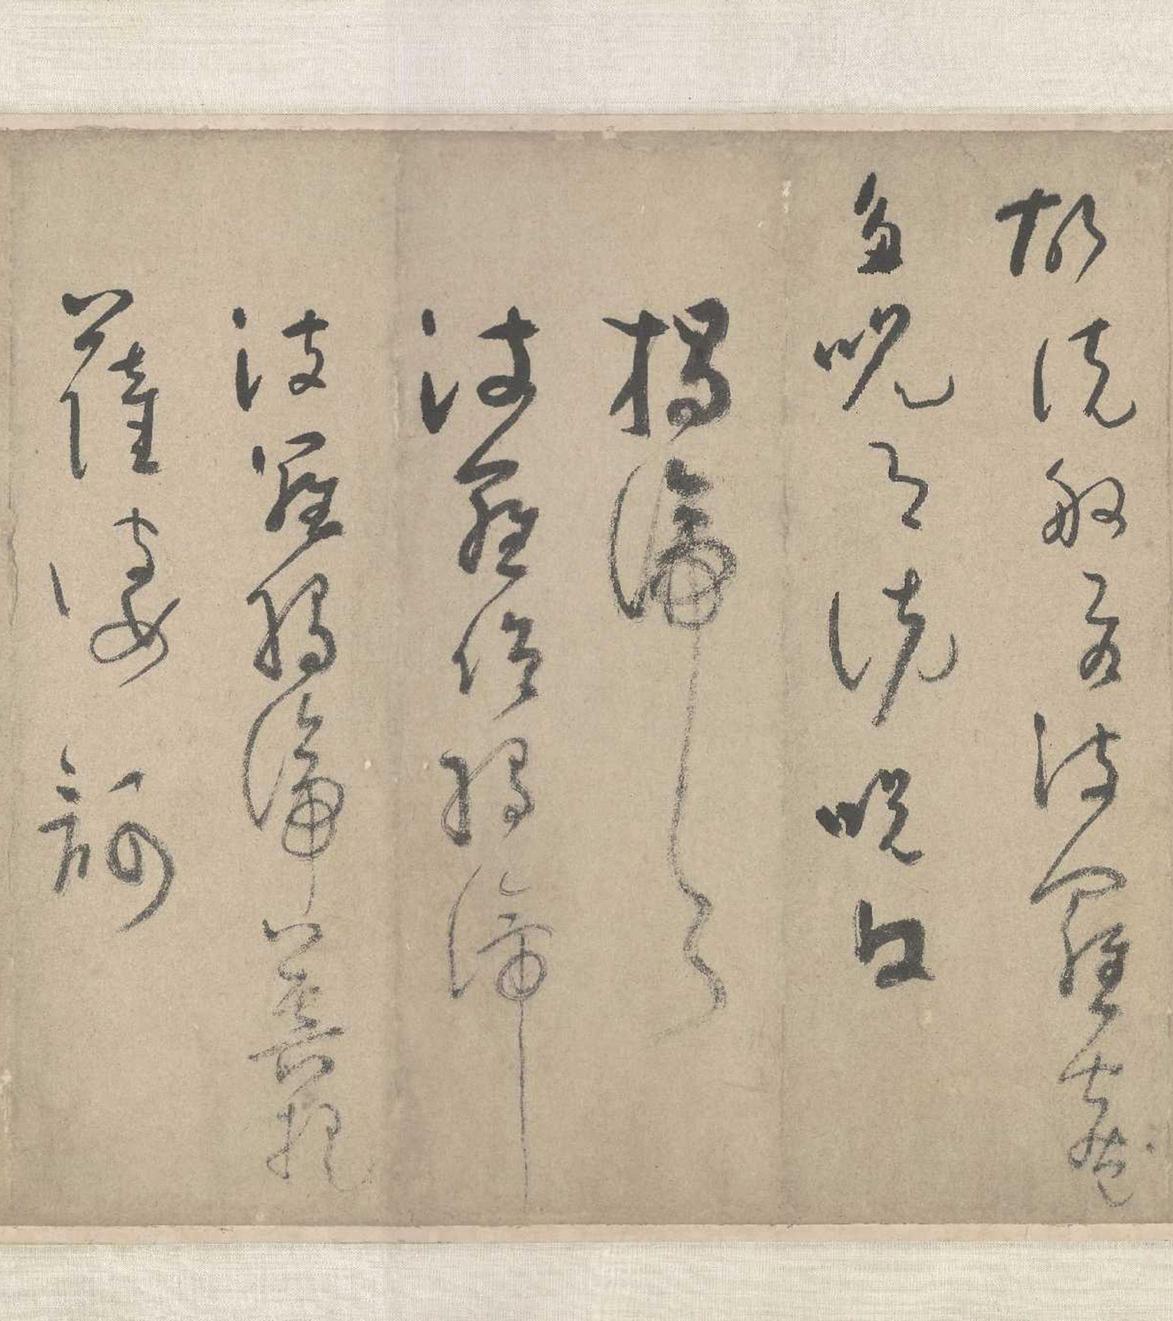 故說般若波羅蜜
多呪即說呪曰
揭諦々
波羅僧揭諦
波羅揭諦菩提
薩婆訶